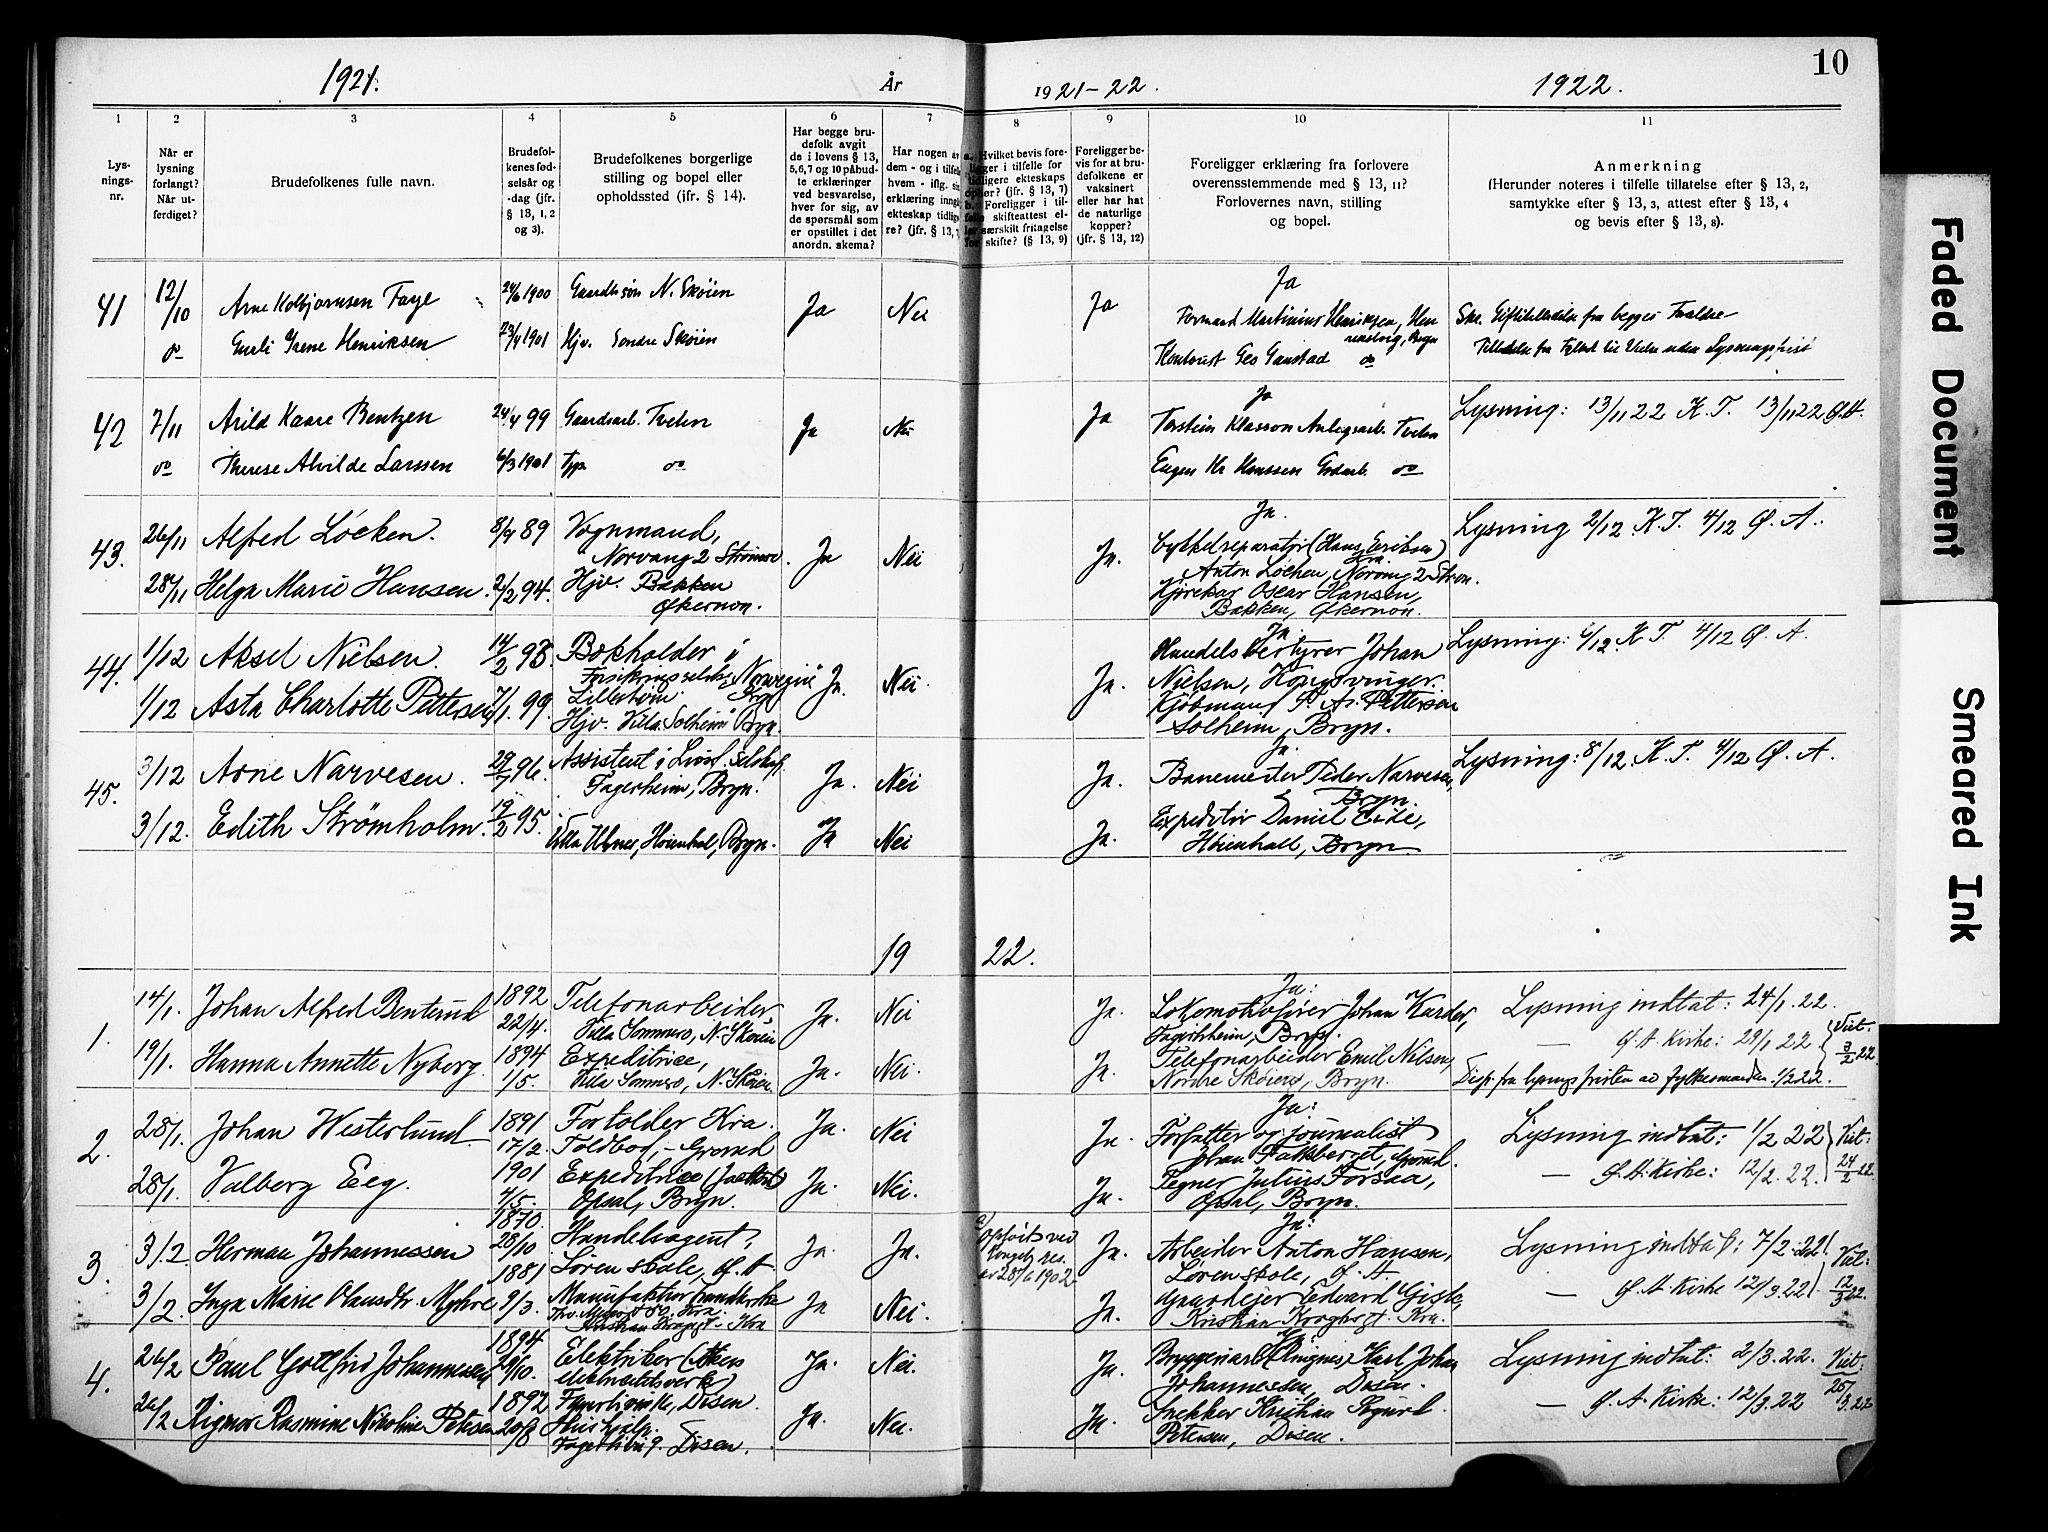 10
1921.
År
1921-22.
1922.
1
2
3
4
5
6
7
8
9
10
11
Lys-
nings-
nr.
Når er
lysning
forlangt?
Når ut-
ferdiget?
Brudefolkenes fulle navn.
Brudefol-
kenes fød-
selsår og
-dag (jfr.
§ 13, 1, 2
og 3).
Brudefolkenes borgerlige
stilling og bopel eller
opholdssted (ifr. § 14).
Har begge bru-
defolk avgit
de i lovens § 13,
5,6,7 og 10 påbud-
te erklæringer
ved besvarelse,
hver for sig, av
de spørsmål som
er opstillet i det
anordn. skema?
Har nogen av
dem - og i tilfelle
hvem - iflg. sin
erklæring inngått
ekteskap tidlige-
re? (jfr. § 13,
a. Hvilket bevis fore-
ligger i tilfelle for
tidligere ekteskaps
ophør? (jfr. § 13, 7)
b. Foreligger i til-
felle skifteattest el-
ler særskilt fritagelse
for skifte? (§ 13, 9)
Foreligger be-
vis for at bru-
defolkene er
vaksinert
eller har hat
de naturlige
kopper?
(jfr. § 13, 12)
Foreligger erklæring fra forlovere
overensstemmende med § 13, 11?
Forlovernes navn, stilling
og bopel.
Anmerkning
(Herunder noteres i tilfelle tillatelse efter § 13, 2,
samtykke efter § 13, 3, attest efter § 13, 4
og bevis efter § 13, 8).
41 12/10 Arne Kolbjørnsen Faye 24/6 1900 Gaardbr.søn N. Skøien Ja Nei Ja Ja
Formand Martinius Henriksen, Bryn
do Gurli Irene Henriksen 23/4 1901 Hjv. Søndre Skøien
Kontorist Geo Gaustad do
Skr. fra begges Foreldre
42 7/11 Arild Kaare Bentzen 24/4 99 Gaardsarb. Tveten Ja Nei Ja Ja
Torstein Klasson Anlegsarb. Tveten
Lysning: 13/11 22 K.T. 13/11 22 Ø.A.
do Therese Alvilde Larssen 6/3 1901 Tjp. do
Eugen Kr Hanssen Gdarb. do
43. 26/11 Alfred Løcken. 8/4 89 Vognmand,
Norvang 2 Strømsv. Ja Nei Ja. Ja.
Cykkelreparatør (Hans Eriksen)
Anton Løcken, Norvng 2 Strøm.
Lysning 2/12 K.T. 4/12 Ø.A.
28/11 Helga Marie Hansen. 2/2 94. Hjv. Bakken
Økernon.
Kjørekar Oscar Hansen,
Bakken, Økernon.
44. 1/12 Aksel Nielsen. 14/2 98. Bokholder i
Forsikringsselsk. Norvegia
Lillestrøm. Ja. Nei. Ja. Ja
Handelsbestyrer Johan
Nielsen, Kongsvinger.
Lysning: 6/12. K.T. 4/12 Ø.A.
1/12 Asta Charlotte Pettersen 7/1. 99. Hjv. Villa Solheim Bryn.
Kjøbmand P. A. Pettersen
Solheim, Bryn.
45. 3/12 Arne Narvesen. 29/7 96. Assistent i Livsf. Selskap.
Fagerheim, Bryn. Ja. Nei Ja. Ja.
Banemester Peder Narvesen,
Bryn.
Lysning: 8/12. K.T. 4/12 Ø.A.
3/12. Edith Strømholm. 19/2 95. Villa Ulmes, Høienhal, Bryn. Ja Nei Ja.
Expeditør Daniel Eide,
Høienhall, Bryn.
1922.
1. 14/1. Johan Alfred Bentrud 1892 22/4. Telefonarbeider
Villa Sommero, N. Skøien Ja. Nei Ja. Ja:
Lokomotivfører Johan Karder,
Fagerheim, Bryn.
Lysning indtat: 24/1. 22.
— Ø. A. Kirke: 29/1 22
Viet. 3/2 22.
19/1. Hanna Annette Nyborg. 1894 1/5. Expeditrice,
Villa Sommero, N. Skøien Ja. Nei. Ja.
Telefonarbeider Emil Nilsen,
Nordre Skøien, Bryn.
Disp. fra lysningsfristen av fylkesmanden 1/2 22.
2. 28/1. Johan Westerlund 1891 17/2. Fortolder Kra.
Toldbod, - Grorud Ja. Nei Ja. Ja:
Forfatter og journalist
Johan Falkberget, Grorud.
Lysning indtat: 1/2 22
— Ø. A. Kirke: 12/2. 22.
Viet: 24/2 22.
28/1. Valberg Eeg. 1901 4/5. Expeditrice
Opsal, Bryn. Ja. Nei. Ja.
Tegner Julius Forsaa,
Opsal, Bryn.
3. 3/2 Herman Johannessen 1870. 28/10. Handelsagent,
Løren skole, Ø. A. Ja. Ja.
a) Opløst ved
kongel. res.
av 28/6 1902
Ja. Ja:
Arbeider Anton Hansen,
Løren skole, Ø. A
Lysning indtat: 7/2. 22.
— Ø. A. Kirke 12/3. 22
Viet: 12/3 22.
3/2. Inga Marie Olausdtr. Myhre 1881 9/3. Manufakturhandlerske
Kristian Krogsgt. Kra Ja Nei. Ja.
Gaardejer Edvard Giske,
Kristian Krogsgt. Kra.
4. 26/2 Paul Gottfrid Johannessen 1894 29/10. Elektriker (Akers
elektricitetsverk)
Fagerlivei 16, Disen. Ja. Nei. Ja. Ja
Bryggeriarb. (Ringnes) Karl Johan
Johannessen, Disen.
Lysning indtat: 2/3. 22.
— Ø. A. Kirke: 12/3. 22
Viet: 25/3. 22
26/2 Rigmor Rasmine Nikoline Petersen 1892 20/8 Hushjelp.
Fagerlivei 9. Disen. Ja. Nei. Ja.
Snekker Kristian Sigurd
Petersen, Disen.
Faded Document
Smeared Ink